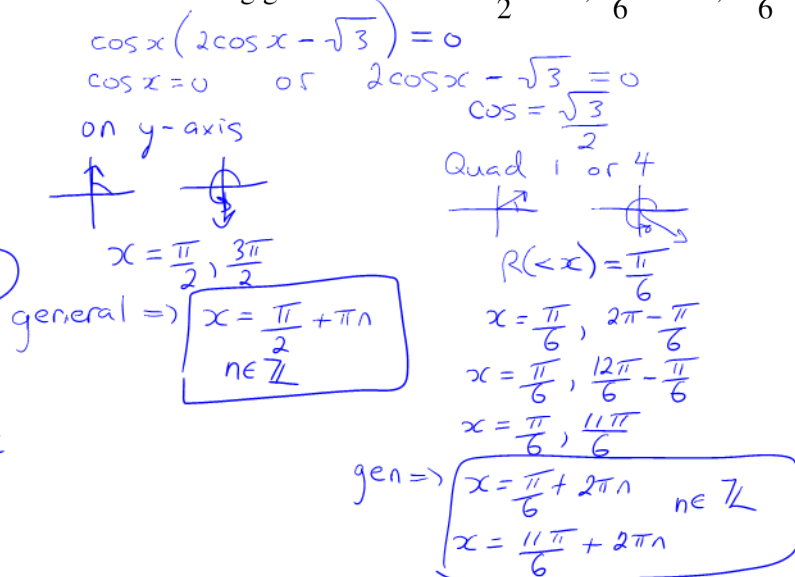 2 6 6
cos x (2cos x - √3) = 0
cos x = 0 or 2cosx - √3 = 0
cos = √3/2
on y-axis
Quad 1 or 4
x = π/2, 3π/2
R(<x) = π/6
general => x = π/2 + πn
n∈ℤ
x = π/6, 2π - π/6
x = π/6, 12π/6 - π/6
x = π/6, 11π/6
gen => x = π/6 + 2πn n∈ℤ
x = 11π/6 + 2πn